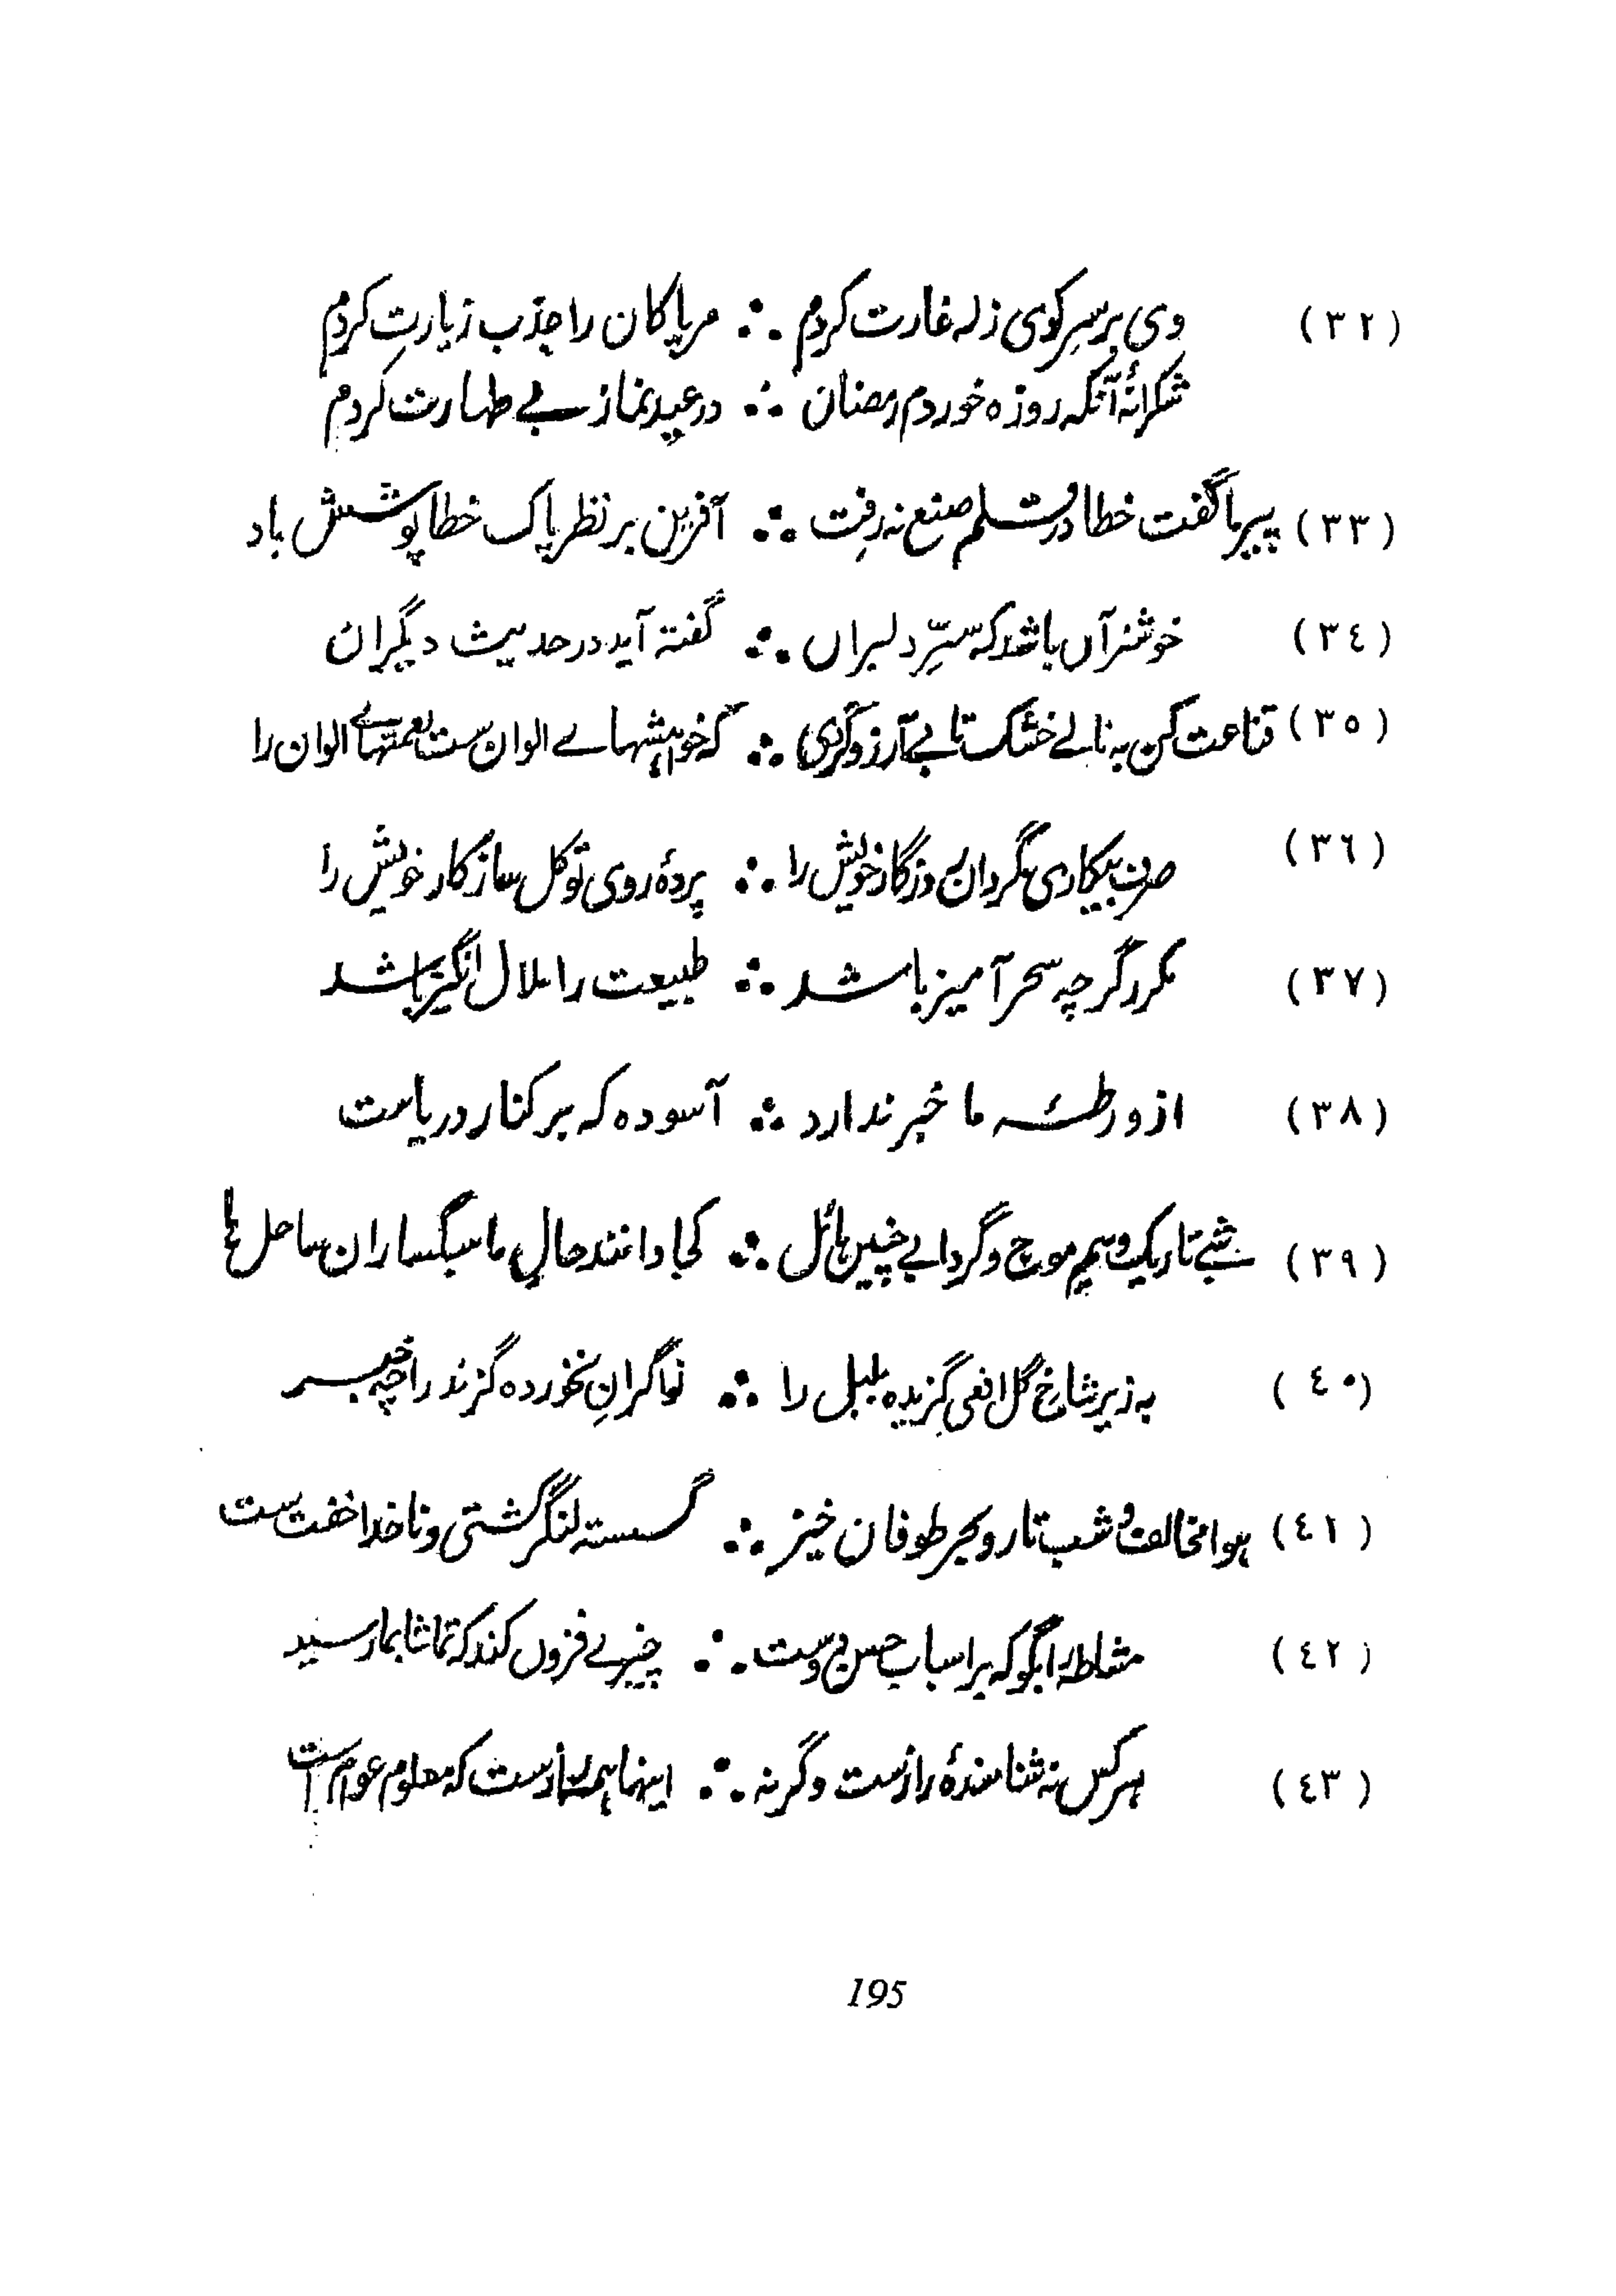 (٣٢) وی بر سرِ کوی زلہ غارت کردم ∴ مر پاکان را جذب زیارتِ کردم
شکرانۂ آنکہ روزہ خوردم رمضان ∴ در عید نماز بے طہارت کردم
(٣٣) پیرِ ما گفت خطا در قلم صنع نہ رفت ∴ آفرین بر نظر پاک خطا پوشش باد
(٣٤) خوشتر آں باشد کہ سرِّ دلبراں ∴ گفتہ آید در حدیث دیگران
(٣٥) قناعت کن بہ نانے خشک تا بے آرزو گردی ∴ کہ خواہشہاے الوان ست نعمتہاے الوان را
(٣٦) صرف بیکاری مگردان روزگار خویش را ∴ پردۂ روی توکل ساز کار خویش را
(٣٧) مکرر گرچہ سحر آمیز باشد ∴ طبیعت را ملال انگیز باشد
(٣٨) از ورطۂ ما خبر ندارد ∴ آسودہ کہ بر کنار دریاست
(٣٩) شبے تاریک و بیمِ موج و گردابے چنیں ہائل ∴ کجا دانند حالِ ما سبگساران ساحل ہا
(٤٠) بہ زیر شاخ گل افعی گزیدہ بلبل را ∴ نواگرانِ نخوردہ گزند را چہ خبر
(٤١) ہوا مخالف و شب تار و بحر طوفان خیز ∴ گسستہ لنگر کشتی و ناخدا خفت ست
(٤٢) مشاطہ را بگو کہ بر اسباب حسن دوست ∴ چیزے فزوں کند کہ تماشا بما رسید
(٤٣) ہر کس نہ شناسندۂ راز ست وگرنہ ∴ اینہا ہمہ راز ست کہ معلوم عوام است
195